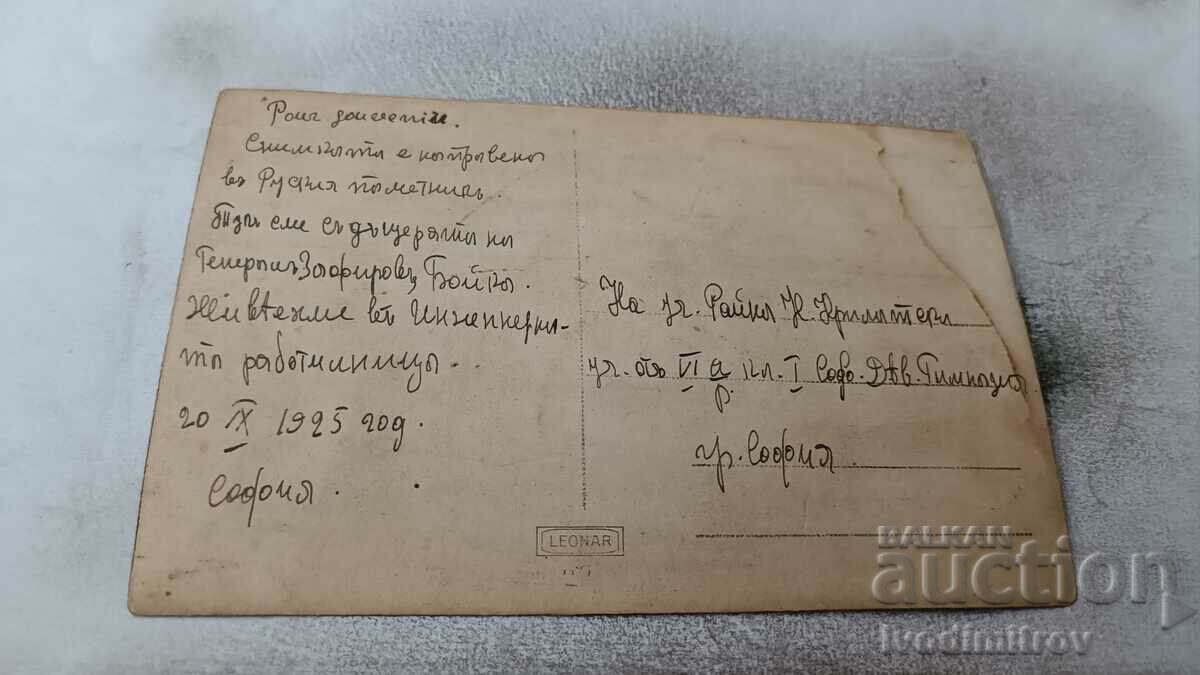 Снимката е направена
въ Руския паметникъ.
Тукъ сме съ дъщерята на
Генералъ Зафировъ, Бойка.
Живѣехме въ Инженерна-
та работилница.
20 IX 1925 год.
София.
На уч. Райна К.
уч. отъ VI а кл. I Соф. Дѣв. Гимназия
р.
гр. София
LEONAR
BALKAN
auction
ivodimitrov